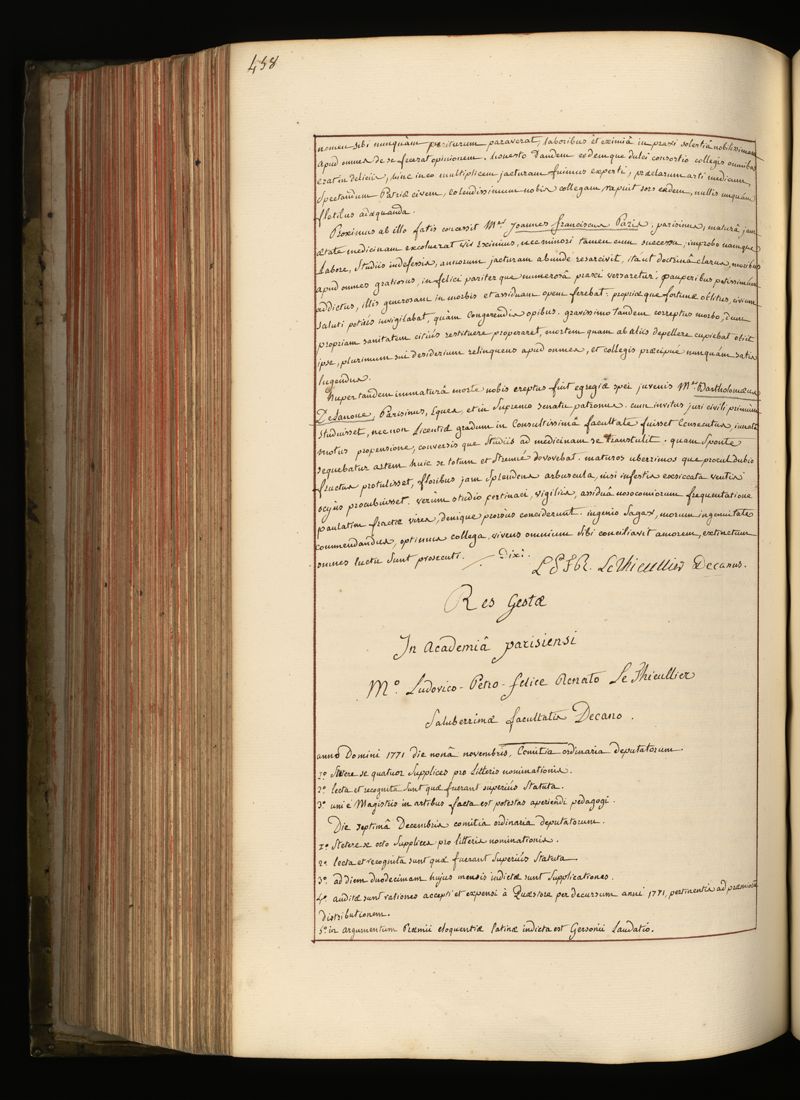 458
nomen sibi nunquàm periturum paraverat, laboribus et eximiâ in praxi solertiâ nobilissimam
apud omnes de se fecerat opinionem. honesto tandem eodemque dulci consortio collegis omnibus
erat in deliciis, hinc in eo multiplicem jacturam fuimus experti; præclarum arti medicum,
spectandum Patriæ civem, colendissimum nobis collegam rapuit sors eadem, nullis unquàm
fletibus adæquanda.
Proximus ab illo fatis concessit Mer Joannes franciscus Paris, parisinus, maturâ jam
ætate medicinam excoluerat vir eximius, nec minori tamen cum successu, improbo namque
Labore, studiis indefessis, annorum jacturam abundè resarcivit, ita ut doctrinâ clarus, moribus
apud omnes gratiosus, in felici pariter que numerosâ praxi versaretur; pauperibus potissimùm
addictus, illis generosam in morbis et assiduam opem ferebat. propriæ que fortunæ oblitus, civium
saluti potiùs invigilabat, quàm Congerendis opibus. gravissimo tandem correptus morbo, dum
propriam sanitatem citiùs restituere properaret, mortem quam ab aliis depellere cupiebat obiit
ipse, plurimum sui desiderium relinquens apud omnes, et collegis præcipuè nunquàm satis
lugendus.
Nuper tandem immaturâ morte nobis ereptus fuit egregiæ spei juvenis Mer Bartholomæus
Delanoue, Parisinus, Eques, et in Supremo Senatu patronus. cum invitus juri civili primùm
studuisset, nec non Licentiæ gradum in Consultissimâ facultate fuisset Consecutus, innatâ
motus propensione, conversis que Studiis ad medicinam se transtulit. quam Sponte
sequebatur artem huic se totum et strenuè dovovebat. maturos uberrimos que procul dubio
fructus protulisset, floribus jam Splendens arbuscula, nisi infestis exsiccata ventis
ocyùs procubuisset. verùm studio pertinaci, vigiliis, assiduâ nosocomiorum frequentatione
paulatim fractæ vires, denique prorsùs conciderunt. ingenio Sagax, morum ingenuitate
commendandus, optimus collega, vivens omnium sibi conciliavit amorem, extinctum
omnes luctu sunt prosecuti. Dixi.
L P F R. Le Thieullier Decanus.
Res Gestæ
In Academiâ parisiensi
Mo. Ludovico-Petro-felice Renato Le Thieullier
Saluberrimæ facultatis Decano.
anno Domini 1771 die nonâ novembris, Comitia ordinaria deputatorum.
1o. Stetere se quatuor Supplices pro Litteris nominationis.
2o. lecta et recognita sunt quæ fuerant superiùs Statuta.
3o. uni è Magistris in artibus facta est potestas aperiendi pedagogi.
Die septimâ Decembris comitia ordinaria deputatorum.
1o. Stetere se octo Supplices pro litteris nominationis.
2o. lecta et recognita sunt quæ fuerant Superiùs Statuta
3o. ad diem duodecimam hujus mensis indictæ sunt Supplicationes.
4o. auditæ sunt rationes accepti et expensi à Quæstore per decursum anni 1771, pertinentis ad præmiorum
distributionem.
5o. in argumentum Præmii eloquentiæ latinæ indicta est Gersonii Laudatio.